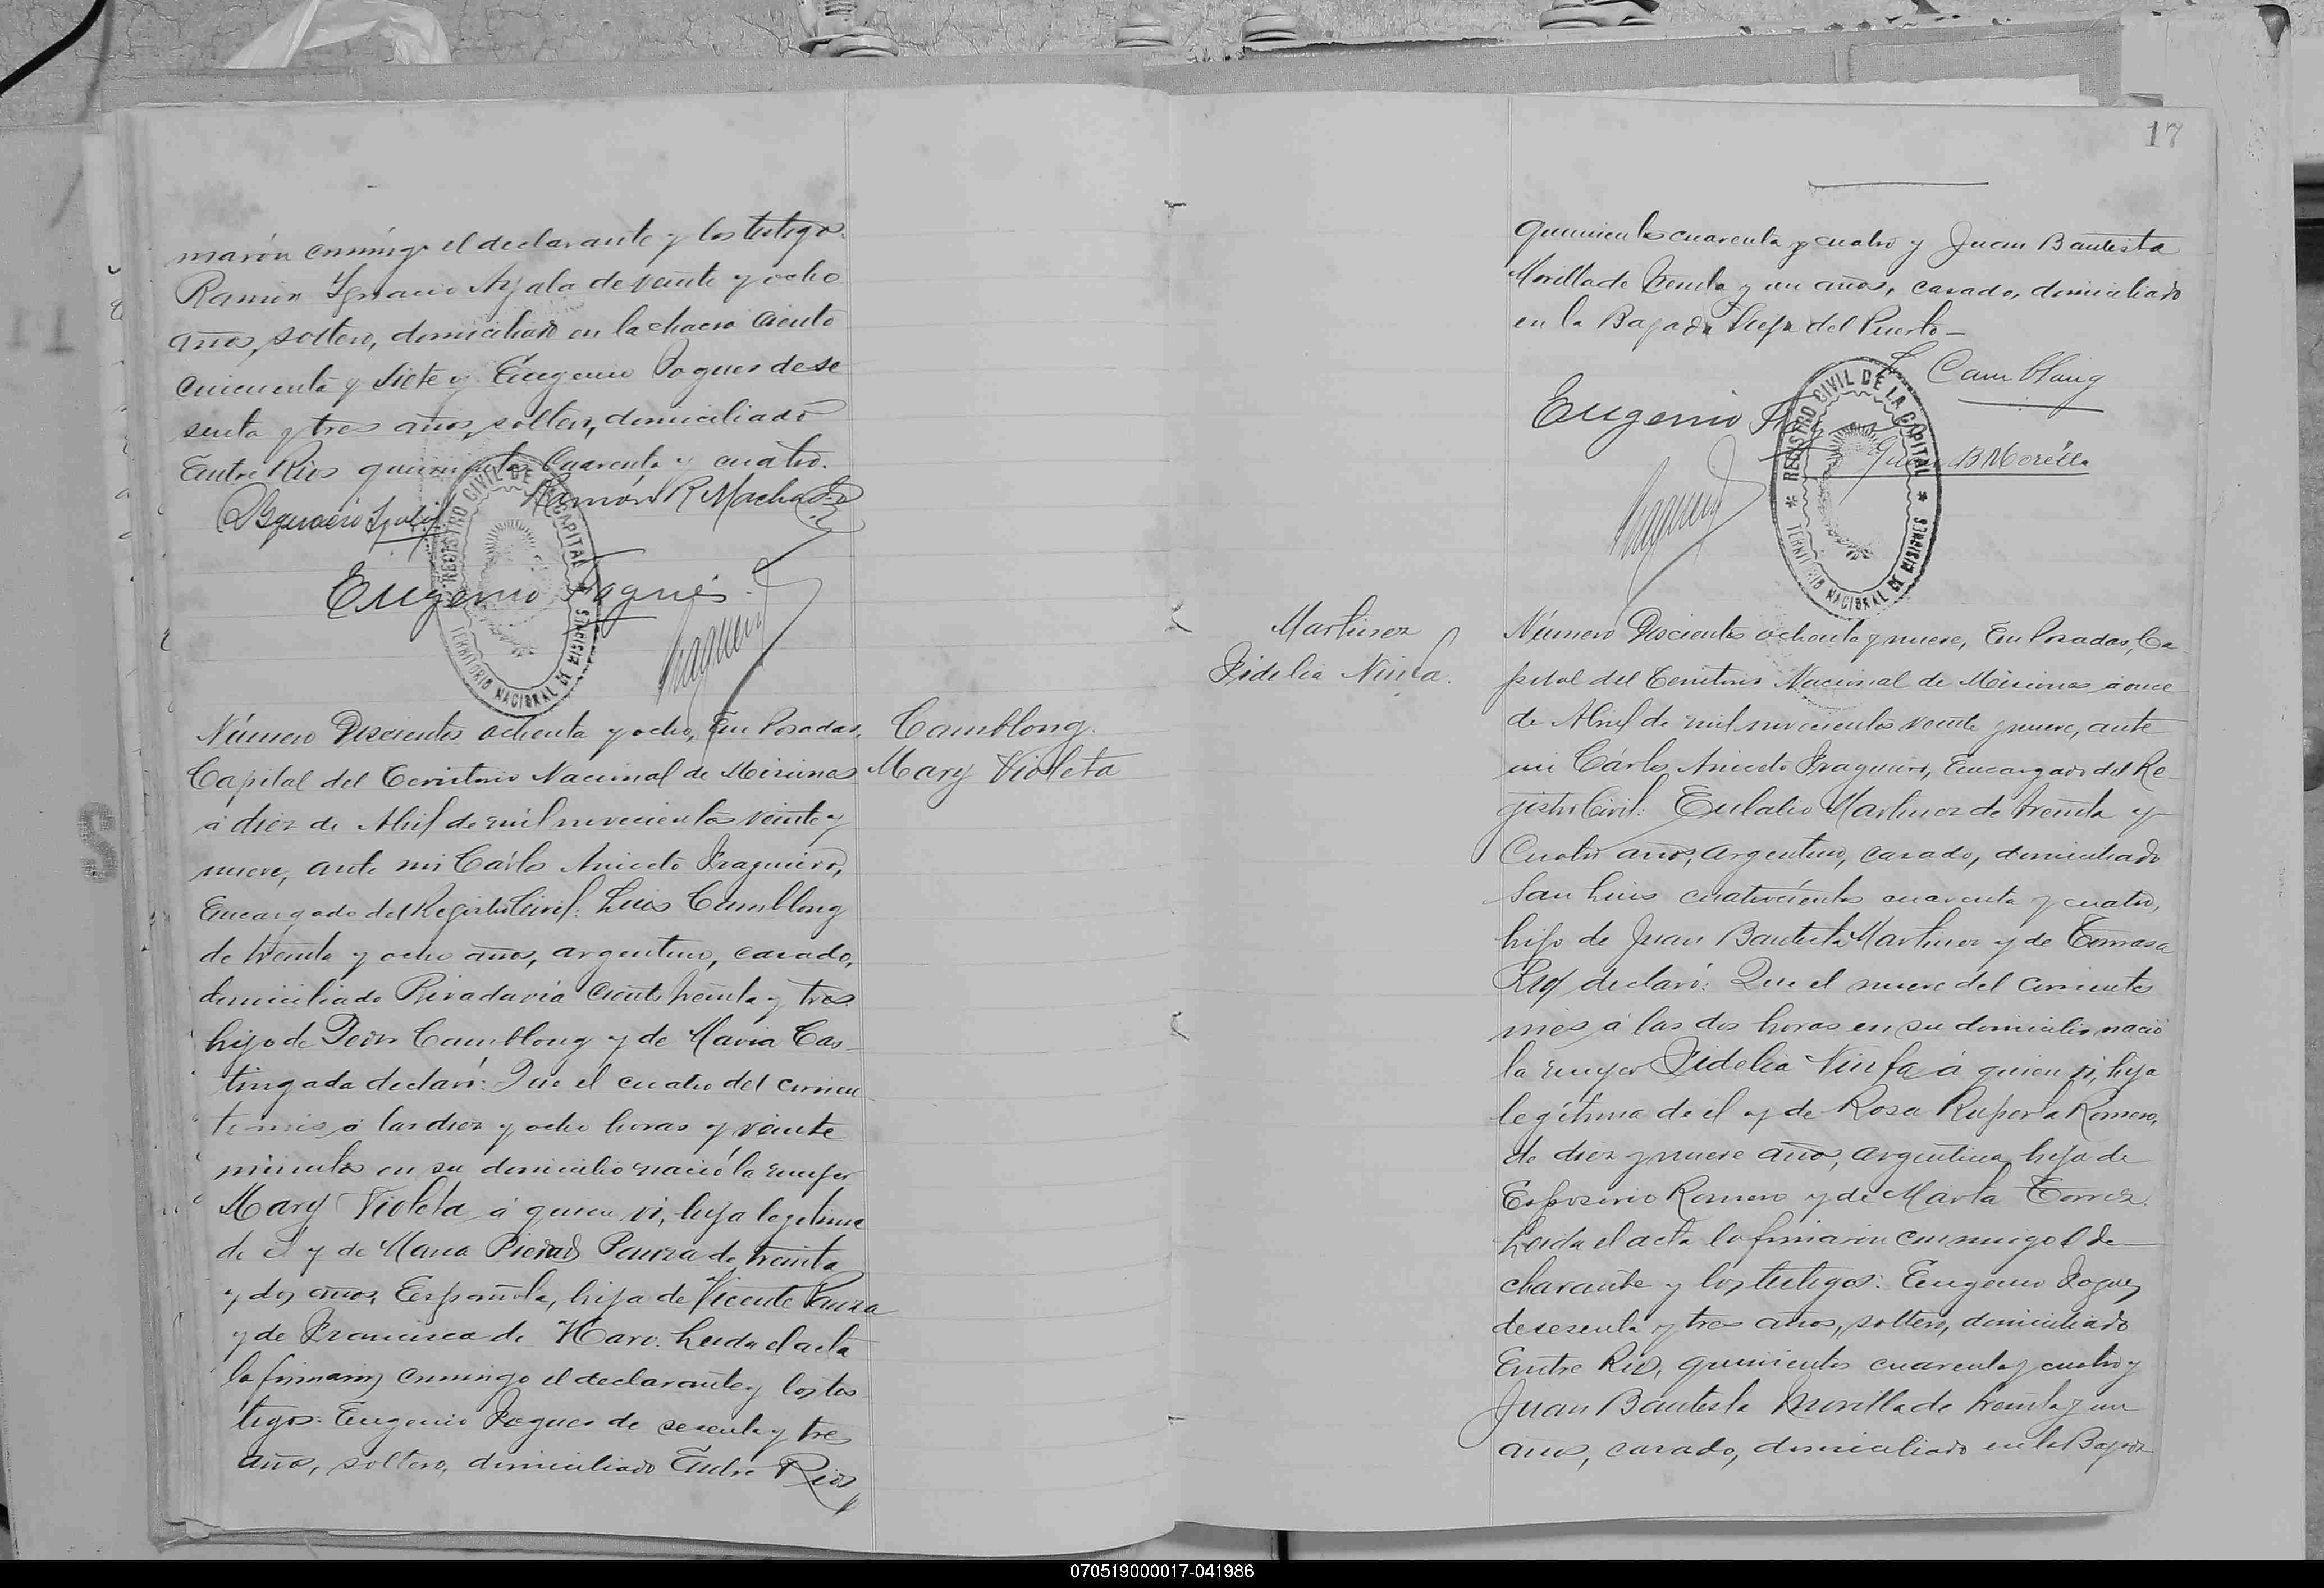 marón conmigo el declarante y los testigos:
Ramón Ignacio Ayala de veinte y ocho
años, soltero, domiciliado en la chacra ciento
cincuenta y siete y Eugenio Fogues de se
senta y tres años, soltero, domiciliado
Entre Rios quinientos cuarenta y cuatro.
Ramón R Machado
Eugenio Fogués
REGISTRO CIVIL DE LA CAPITAL
TERRITORIO NACIONAL DE MISIONES
Número Doscientos ochenta y ocho, En Posadas,
Capital del Territorio Nacional de Misiones
á diez de Abril de mil novecientos veinte y
nueve, ante mi Cárlos Aniceto Fragueiro,
Encargado del Registro Civil: Luis Camblong
de treinta y ocho años, argentino, casado,
domiciliado Rivadavia ciento treinta y tres
hijo de Pedro Camblong y de Maria Cas
tingada declaró: Que el cuatro del corrien
te mes á las diez y ocho horas y veinte
minutos en su domicilio nació la mujer
Mary Violeta á quien ví, hija legitima
de él y de Maria Piedad Pauza de treinta
y dos años, Española, hija de Vicente Pauza
y de Francisca de Haro. Leida el acta
la firmaron conmigo el declarante y los tes
tigos: Eugenio Fogues de sesenta y tres
años, soltero, domiciliado Entre Rios
Camblong
Mary Violeta
17
quinientos cuarenta y cuatro y Juan Bautista
Morilla de treinta y un años, casado, domiciliado
en la Bajada Vieja del Puerto—
L Camblong
Eugenio
Juan B Morilla
REGISTRO CIVIL DE LA CAPITAL
TERRITORIO NACIONAL DE MISIONES
Martinez
Fidelia Ninfa.
Número Doscientos ochenta y nueve, En Posadas, Ca
pital del Territorio Nacional de Misiones á once
de Abril de mil novecientos veinte y nueve, ante
mi Cárlos Aniceto Fragueiro, Encargado del Re
gistro Civil: Eulalio Martinez de treinta y
cuatro años, argentino, casado, domiciliado
San Luis cuatrocientos cuarenta y cuatro,
hijo de Juan Bautista Martinez y de Tomasa
declaró: Que el nueve del corriente
mes á las dos horas en su domicilio nació
la mujer Fidelia Ninfa á quien ví, hija
legítima de el y de Rosa Ruperta Romero,
de diez y nueve años, argentina, hija de
Romero y de Marta Torres.
Leida el acta la firmaron conmigo el de
clarante y los testigos: Eugenio Fogues
de sesenta y tres años, soltero, domiciliado
Entre Rios, quinientos cuarenta y cuatro y
Juan Bautista Morilla de treinta y un
años, casado, domiciliado en la Bajada
070519000017-041986